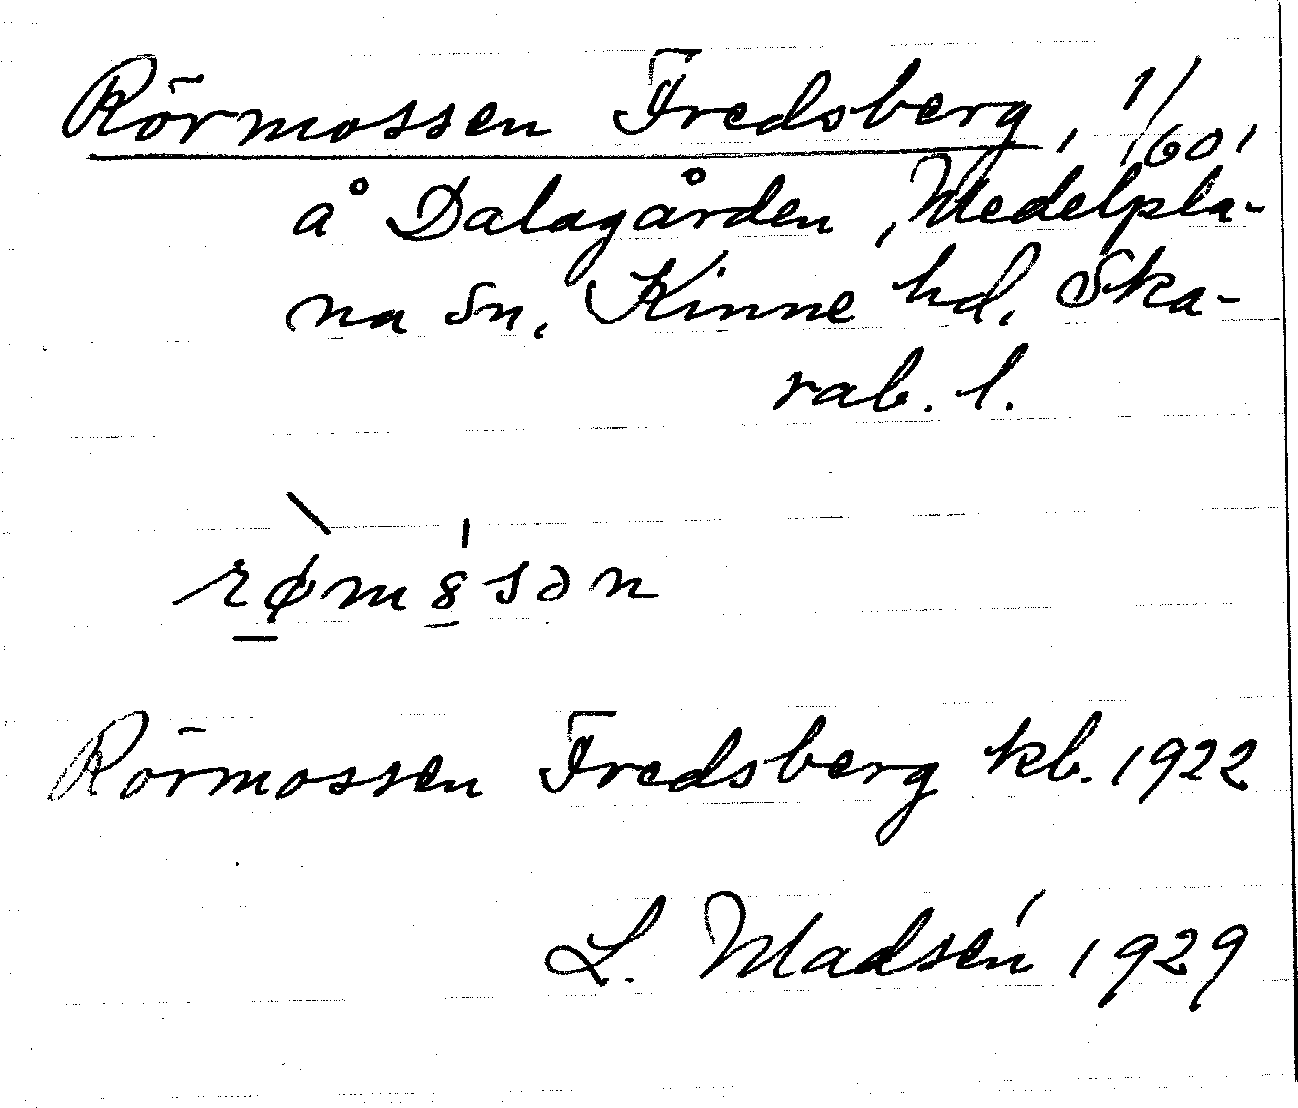 Rörmossen Fredsberg, 1/60,
å Dalagården, Medelpla-
na sn, Kinne hd, Ska-
rab. l.
Rörmossen Fredsberg kb. 1922
L. Madsén 1929